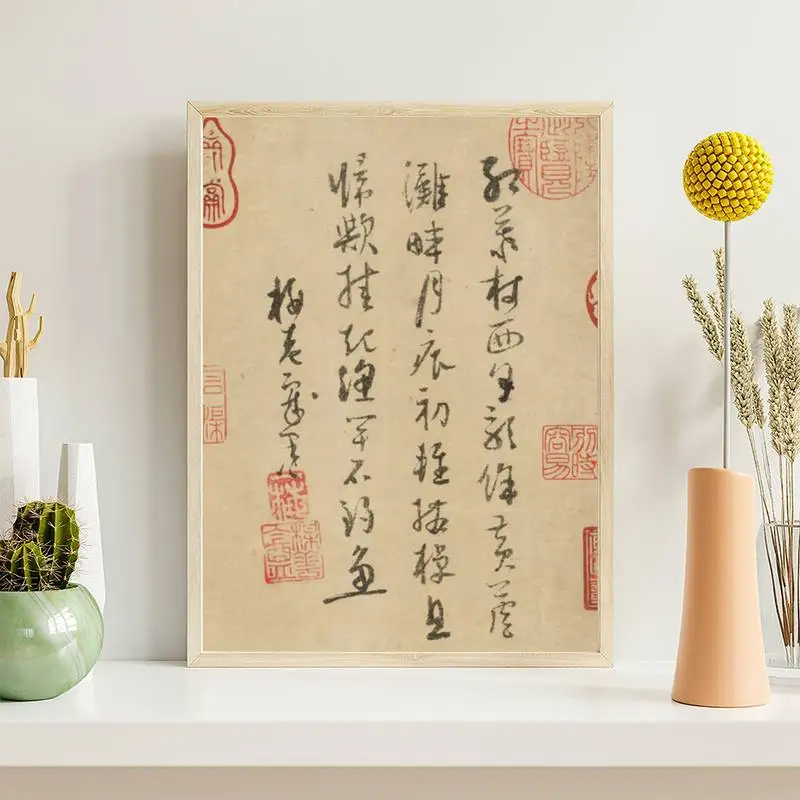 紅葉村西日影餘黃蘆
灘畔月痕初輕撥棹且
歸歟挂起漁竿不釣魚
梅老戲墨